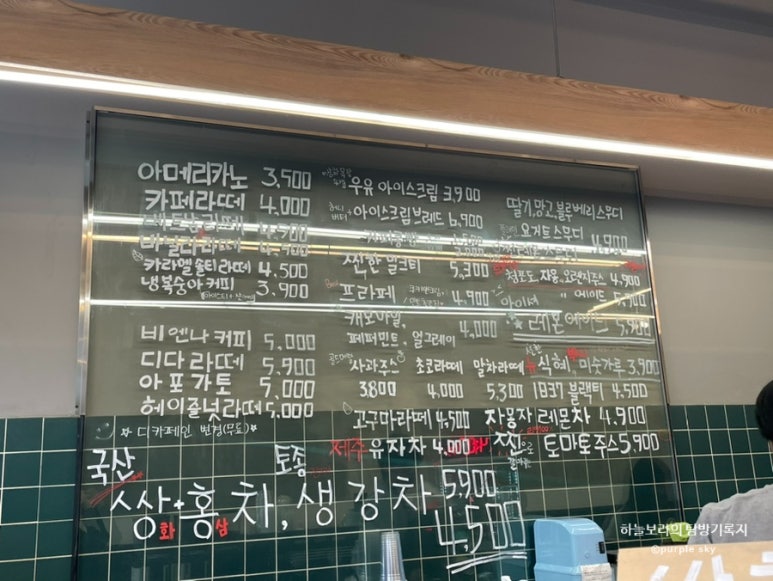 아메리카노 3,500
카페라떼 4,000
4,900
바닐라라떼 4,500
카라멜 솔티라떼 4,500
냉복숭아커피 3,900
비엔나 커피 5,000
디다라떼 5,900
아포가토 5,000
헤이즐넛라떼 5,000
☆ 디카페인 변경(무료)☆
우유 아이스크림 3,900
허니버터 아이스크림브레드 6,900
찐한 밀크티 5,300
프라페 4,900
캐모마일, 4,000
페퍼민트, 얼그레이
사과주스 초코라떼 말차라떼 식혜, 미숫가루 3,900
3,800 4,000 5,300 1837 블랙티 4,500
고구마라떼 4,500 자몽차 레몬차 4,900
제주 유자차 4,000 찐으로 토마토주스 5,900
딸기, 망고, 블루베리스무디
요거트 스무디 4,900
청포도, 자몽, 오렌지주스 4,900
" 에이드 5,900
☆ 레몬에이드 5,900
국산 토종
쌍화+홍삼차, 생강차 5,900
4,500
하늘보라의 탐방기록지
©purple sky